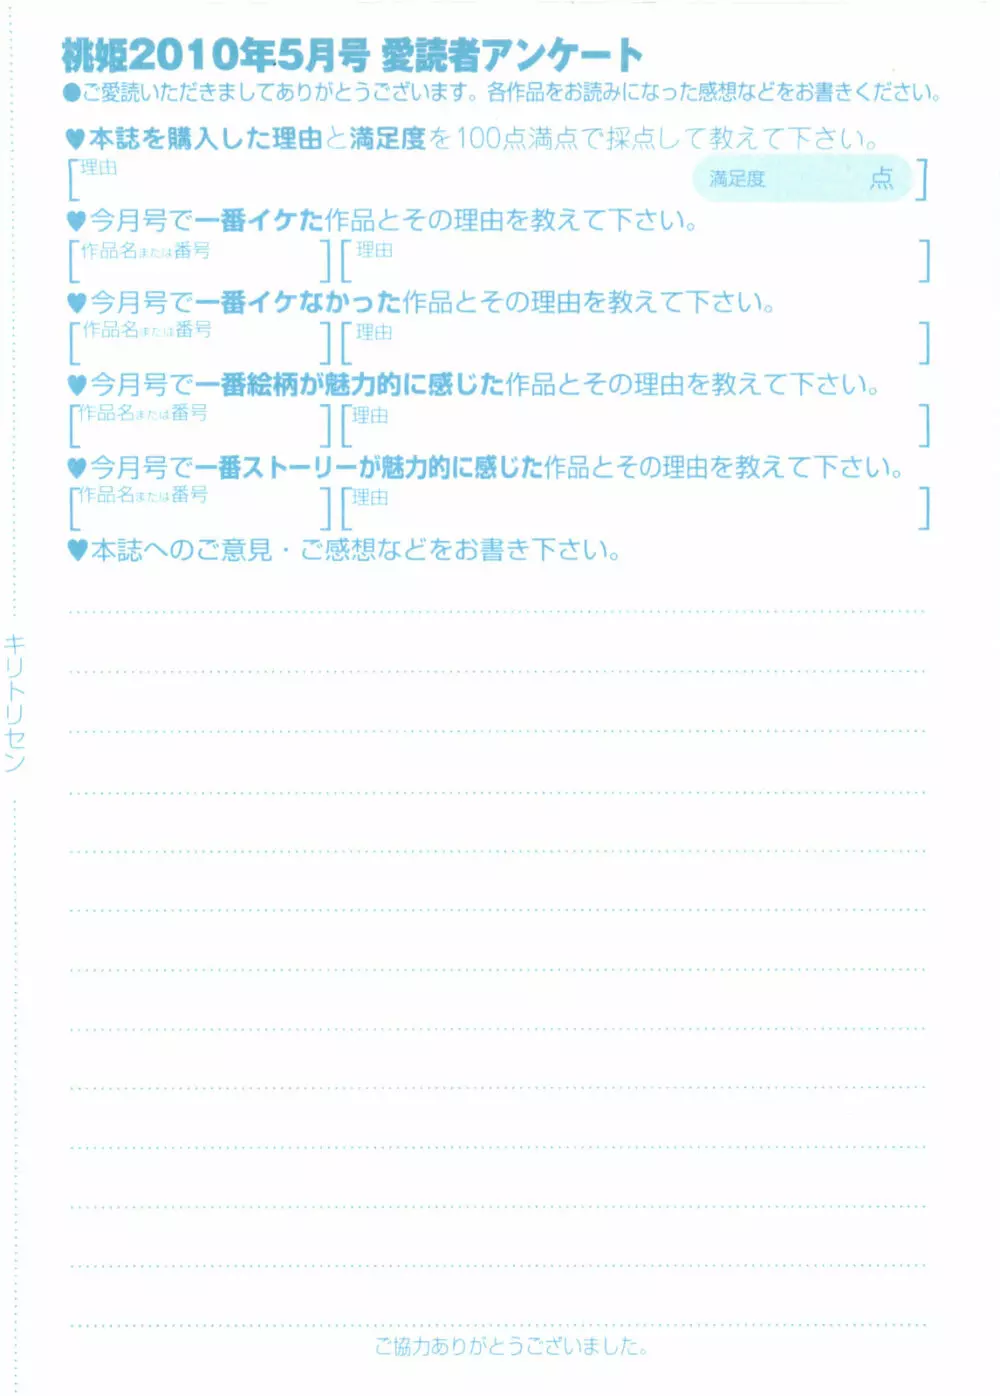 桃姫2010年5月号 愛読者アンケート
●ご愛読いただきましてありがとうございます。各作品をお読みになった感想などをお書きください。
♥本誌を購入した理由と満足度を100点満点で採点して教えて下さい。
理由 満足度 点
♥今月号で一番イケた作品とその理由を教えて下さい。
作品名または番号 理由
♥今月号で一番イケなかった作品とその理由を教えて下さい。
作品名または番号 理由
♥今月号で一番絵柄が魅力的に感じた作品とその理由を教えて下さい。
作品名または番号 理由
♥今月号で一番ストーリーが魅力的に感じた作品とその理由を教えて下さい。
作品名または番号 理由
♥本誌へのご意見・ご感想などをお書き下さい。
キリトリセン
ご協力ありがとうございました。